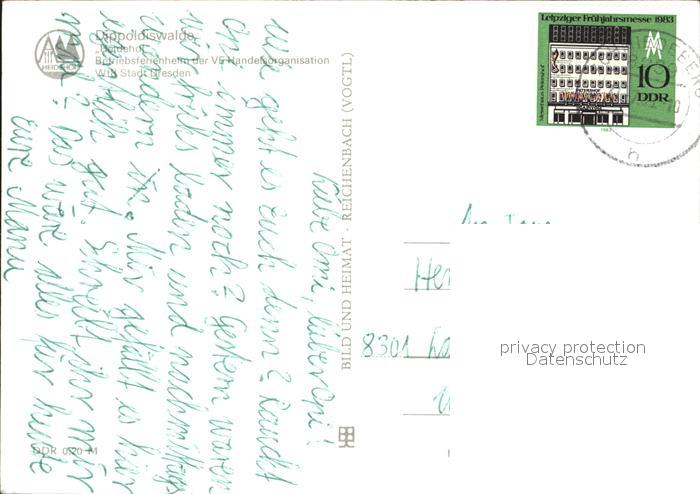 Dippoldiswalde
„Heidehof“
Betriebsferienheim der VE Handelsorganisation
WtB Stadt Dresden
HEIDEHOF
Leipziger Frühjahrsmesse 1983
Messehaus Petershof
10
DDR
1983
Liebe Omi, lieber Opi!
wie geht es Euch denn? Raucht
Opi immer noch? Gestern waren
wir früh baden und nachmittags
wandern Mir gefällt es hier
gut. Schreibt ihr mir
mal? Das wäre alles für heute
Eure Manu
BILD UND HEIMAT · REICHENBACH (VOGTL)
8301
DDR 0,20 M
privacy protection
Datenschutz